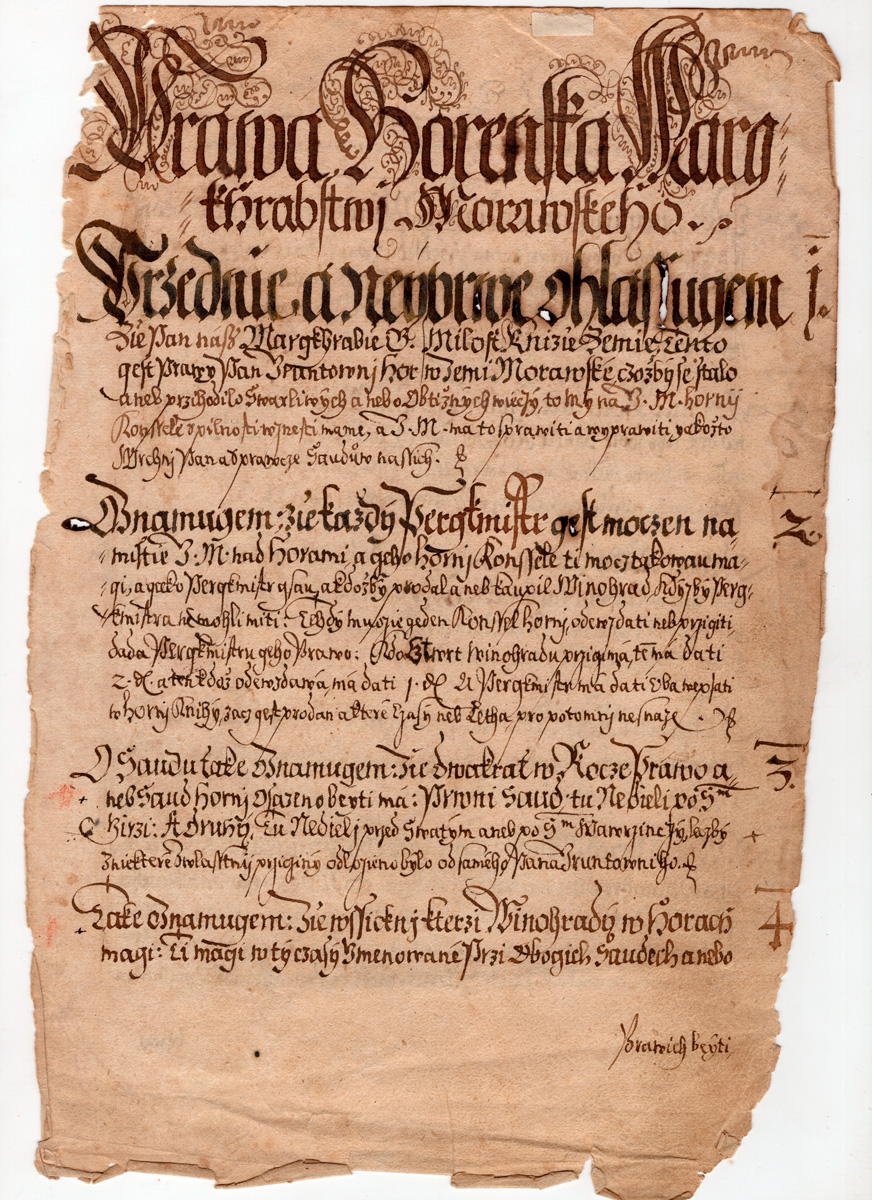 Prawa Horenska Marg-
khrabstwj Morawskeho.
Przednie a neyprwe ohlassugem 1.
Zie Pan nass Margkhrabie G. Milost Knizie Zemie Tento
gest Prawy Pan Gruntownj hor w Zemi Morawske, czozby se stalo
aneb przichodilo Swarliwych anebo Obtižnych wieczy, to my na G. M. hornij
Konssele s pilnosti wznesti mame, a G. M. ma to sprawiti a wyprawiti yakožto
Wrchnj Pan a sprawcze Sauduw nassich.
Oznamugem: zie každy Pergkmistr gest moczen na- 2.
mistie G. M. nad horami, a geho hornj Konssele ti mocz takowau ma-
gi, a gako Pergkmistr gsau, a kdožby prodal aneb kaupil Winohrad, kdyžby Perg-
kmistra nemohli miti: Tehdy muozie geden Konssel hornj, odewzdati neb przigiti,
dada Pergkmistru geho Prawo: Kdo Cztwrt winohradu przigima, ten ma dati
2. d. a ten kdož odewzdawa, ma dati 1. d. A Pergkmistr ma dati wepsati
w hornj Knihy, zacz gest prodan a ktere Czasy neb Letha pro potomnj nesnaze.
O Saudu take Oznamugem: Zie dwakrat w Rocze Prawo a- 3.
neb Saud hornj Osazeno beyti ma: Prwnj Saud tu Nedieli po Sm
Girzi: A druhy, Tu Nedielj przed Swatym aneb po Sm Wawrzinczy, lecžby
z niektere zwlasstnj prziginy odlozieno bylo od sameho Pana Gruntowniho.
Take Oznamugem: Zie wssicknj kterzi Winohrady w Horach 4.
magi: Ti magi w ty czasy Gmenowane Przi Obogich Saudech anebo
Prawich beyti